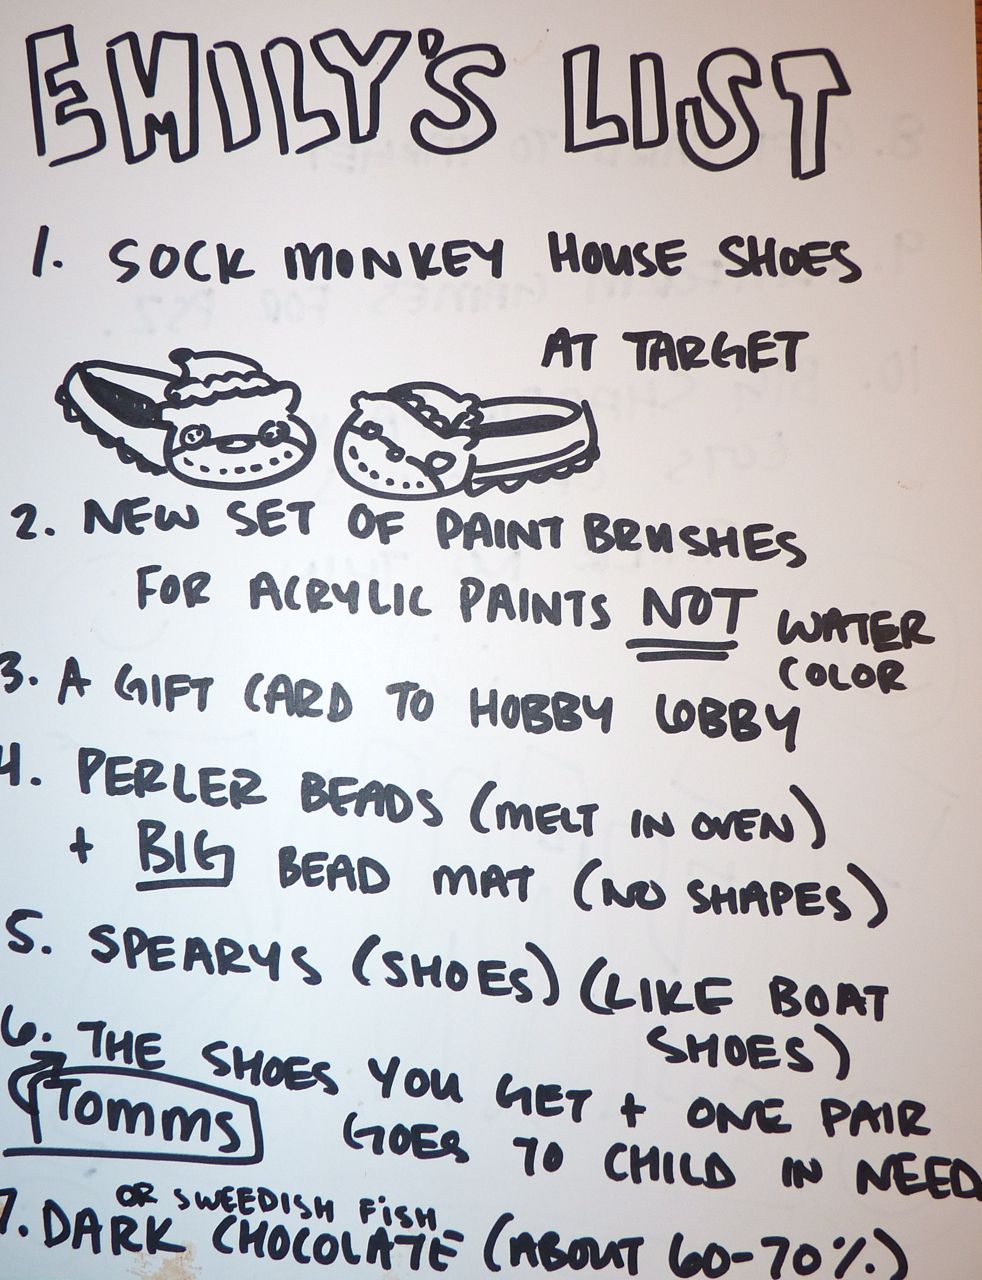 EMILY'S LIST
1. SOCK MONKEY HOUSE SHOES
AT TARGET
2. NEW SET OF PAINT BRUSHES
FOR ACRYLIC PAINTS NOT WATER
COLOR
3. A GIFT CARD TO HOBBY LOBBY
4. PERLER BEADS (MELT IN OVEN)
+ BIG BEAD MAT (NO SHAPES)
5. SPEARYS (SHOES) (LIKE BOAT
SHOES)
6. THE SHOES YOU GET + ONE PAIR
TOMMS GOES TO CHILD IN NEED
OR SWEEDISH FISH
7. DARK CHOCOLATE (ABOUT 60-70%)